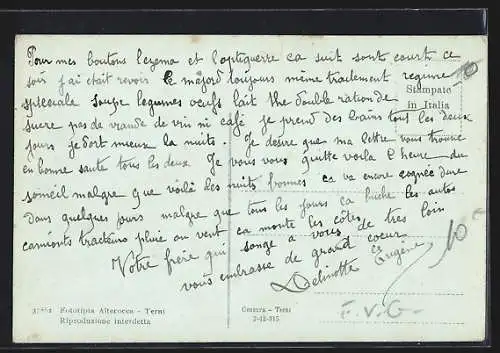 Pour mes boutons lezema et l'aptiguerre ca suit sont court ce
soir j'ai etait revoir le méjord toujours même traitement regime
splecciale soupe legumes œufs lait the double ration de
sucre pas de viande de vin ni café je prend des bains tout les deux
jours je dort mieux la nuits. Je desire que ma lettre vous trouve
en bonne santé tous les deux Je vous vous quitte voila l'heure du
someil malgre que voilà les nuits bonnes ca va encore cognée dure
dans quelques jours malgre que tous les jours ca huche les autos
camionts tracteurs pluie au vent ca monte les côtes
Votre frère qui songe a vous de tres loin
vous embrasse de grand coeur
Delmotte Eugène
Stampato
in Italia
10
F.V.G.
Fototipia Alterocca - Terni
Riproduzione interdetta
Censura - Terni
2-12-915